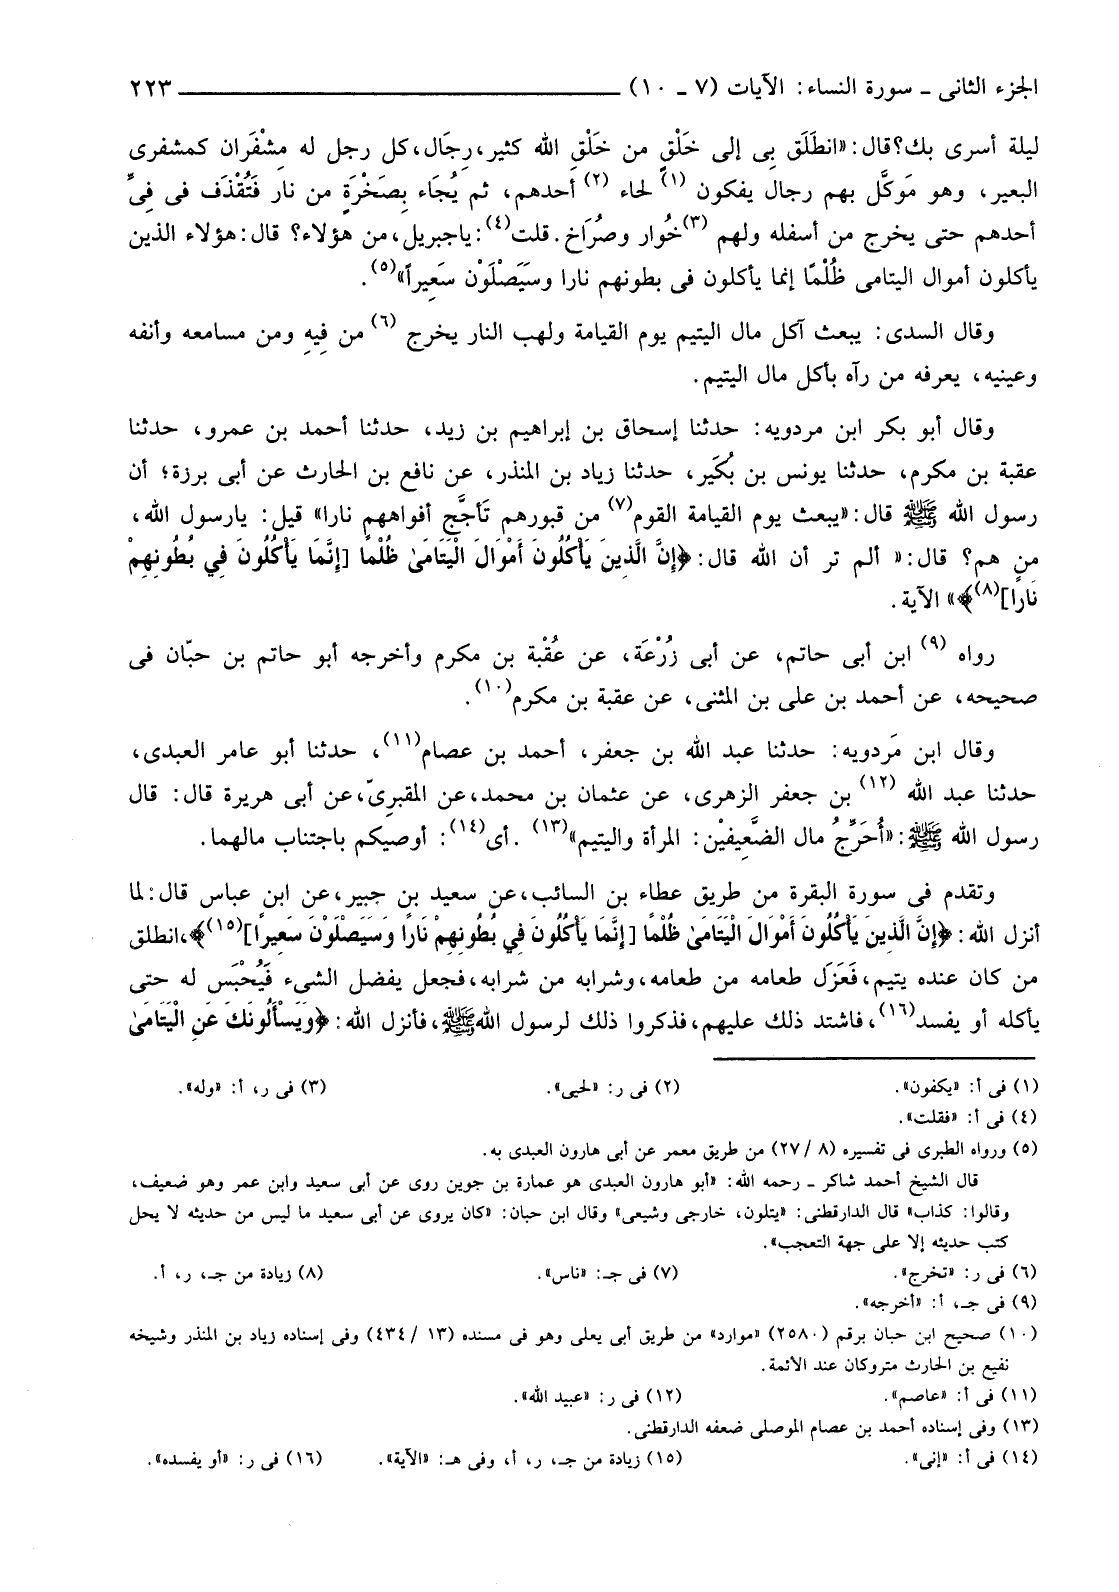 الجزء الثانى ـ سورة النساء: الآيات (٧ ـ ١٠) ٢٢٣
ليلة أسرى بك؟ قال: «انطَلَق بِى إلى خَلْقٍ من خَلْقِ الله كثير، رِجَال، كل رجل له مِشْفَران كمشفرى
البعير، وهو مَوكَّل بهم رجال يفكون (١) لحاء (٢) أحدهم، ثم يُجَاء بِصَخْرَةٍ من نار فَتُقْذَف فى فِىِّ
أحدهم حتى يخرج من أسفله ولهم (٣) خُوار وصُرَاخ. قلت(٤): ياجبريل، من هؤلاء؟ قال: هؤلاء الذين
يأكلون أموال اليتامى ظُلْمًا إنما يأكلون فى بطونهم نارا وسَيَصْلَوْن سَعِيراً»(٥).
وقال السدى: يبعث آكل مال اليتيم يوم القيامة ولهب النار يخرج (٦) من فِيهِ ومن مسامعه وأنفه
وعينيه، يعرفه من رآه بأكل مال اليتيم.
وقال أبو بكر ابن مردويه: حدثنا إسحاق بن إبراهيم بن زيد، حدثنا أحمد بن عمرو، حدثنا
عقبة بن مكرم، حدثنا يونس بن بُكَير، حدثنا زياد بن المنذر، عن نافع بن الحارث عن أبى برزة؛ أن
رسول الله ﷺ قال: «يبعث يوم القيامة القوم(٧) من قبورهم تَأجَّج أفواههم نارا» قيل: يارسول الله،
من هم؟ قال: « ألم تر أن الله قال: ﴿إِنَّ الَّذِينَ يَأْكُلُونَ أَمْوَالَ الْيَتَامَىٰ ظُلْمًا [إِنَّمَا يَأْكُلُونَ فِي بُطُونِهِمْ
نَارًا](٨)﴾» الآية.
رواه (٩) ابن أبى حاتم، عن أبى زُرْعَة، عن عُقْبة بن مكرم وأخرجه أبو حاتم بن حبّان فى
صحيحه، عن أحمد بن على بن المثنى، عن عقبة بن مكرم(١٠).
وقال ابن مَردويه: حدثنا عبد الله بن جعفر، أحمد بن عصام(١١)، حدثنا أبو عامر العبدى،
حدثنا عبد الله (١٢) بن جعفر الزهرى، عن عثمان بن محمد، عن المقبرِىّ، عن أبى هريرة قال: قال
رسول الله ﷺ: «أُحَرِّجُ مال الضَّعِيفيْن: المرأة واليتيم»(١٣) . أى(١٤): أوصيكم باجتناب مالهما.
وتقدم فى سورة البقرة من طريق عطاء بن السائب، عن سعيد بن جبير، عن ابن عباس قال: لما
أنزل الله: ﴿إِنَّ الَّذِينَ يَأْكُلُونَ أَمْوَالَ الْيَتَامَىٰ ظُلْمًا [إِنَّمَا يَأْكُلُونَ فِي بُطُونِهِمْ نَارًا وَسَيَصْلَوْنَ سَعِيرًا](١٥)﴾، انطلق
من كان عنده يتيم، فَعَزَل طعامه من طعامه، وشرابه من شرابه، فجعل يفضل الشىء فَيُحْبَس له حتى
يأكله أو يفسد(١٦)، فاشتد ذلك عليهم، فذكروا ذلك لرسول الله ﷺ، فأنزل الله: ﴿وَيَسْأَلُونَكَ عَنِ الْيَتَامَىٰ
(١) فى أ: «يكفون». (٢) فى ر: «لحيى». (٣) فى ر، أ: «وله».
(٤) فى أ: «فقلت».
(٥) ورواه الطبرى فى تفسيره (٨ /٢٧) من طريق معمر عن أبى هارون العبدى به.
قال الشيخ أحمد شاكر ـ رحمه الله: «أبو هارون العبدى هو عمارة بن جوين روى عن أبى سعيد وابن عمر وهو ضعيف،
وقالوا: كذاب» قال الدارقطنى: «يتلون، خارجى وشيعى» وقال ابن حبان: «كان يروى عن أبى سعيد ما ليس من حديثه لا يحل
كتب حديثه إلا على جهة التعجب».
(٦) فى ر: «تخرج». (٧) فى جـ: «ناس». (٨) زيادة من جـ، ر، أ.
(٩) فى جـ، أ: «أخرجه».
(١٠) صحيح ابن حبان برقم (٢٥٨٠) «موارد» من طريق أبى يعلى وهو فى مسنده (١٣ /٤٣٤) وفى إسناده زياد بن المنذر وشيخه
نفيع بن الحارث متروكان عند الأئمة.
(١١) فى أ: «عاصم». (١٢) فى ر: «عبيد الله».
(١٣) وفى إسناده أحمد بن عصام الموصلى ضعفه الدارقطنى.
(١٤) فى أ: «إنى». (١٥) زيادة من جـ، ر، أ، وفى هـ: «الآية». (١٦) فى ر: «أو يفسده».